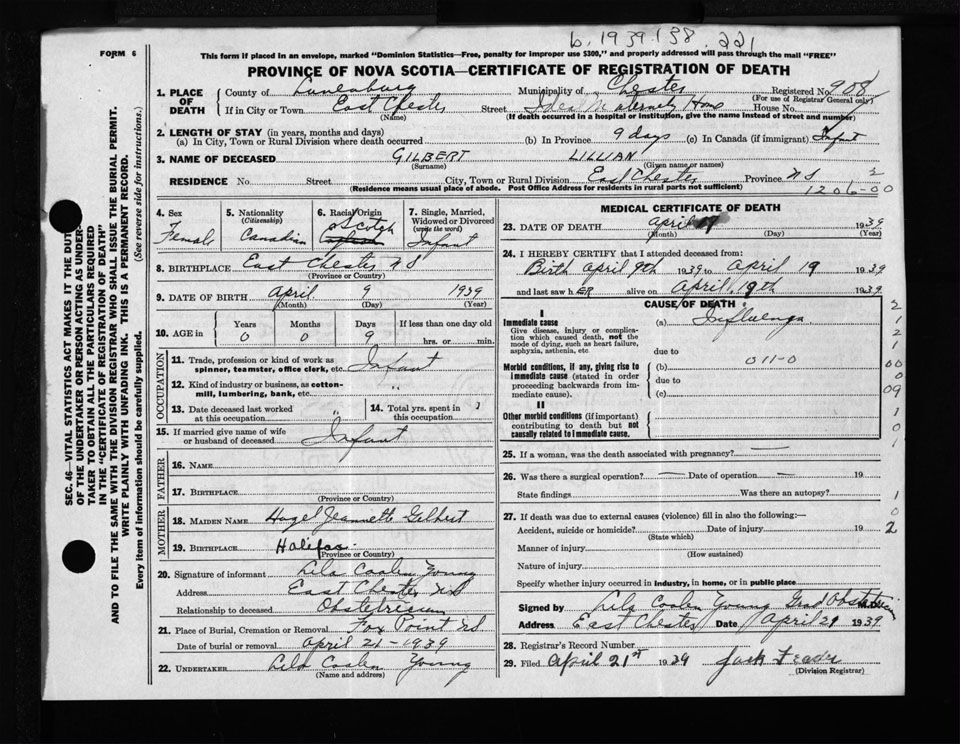 b. 1939. 138 221
FORM 6
This form if placed in an envelope, marked "Dominion Statistics—Free, penalty for improper use $300," and properly addressed will pass through the mail "FREE"
PROVINCE OF NOVA SCOTIA—CERTIFICATE OF REGISTRATION OF DEATH
1. PLACE OF DEATH County of Lunenburg Municipality of Chester Registered No. 908
(For use of Registrar General only)
If in City or Town East Chester Street Ideal Maternity Home House No.
(Name) (If death occurred in a hospital or institution, give the name instead of street and number)
2. LENGTH OF STAY (in years, months and days)
(a) In City, Town or Rural Division where death occurred (b) In Province 9 days (c) In Canada (if immigrant) Infant
3. NAME OF DECEASED GILBERT LILLIAN
(Surname) (Given name or names)
RESIDENCE No. Street City, Town or Rural Division East Chester Province N S 2
(Residence means usual place of abode. Post Office Address for residents in rural parts not sufficient) 1206-00
4. Sex Female
5. Nationality (Citizenship) Canadian
6. Racial Origin Scotch
7. Single, Married, Widowed or Divorced (write the word) Infant
8. BIRTHPLACE East Chester N S
(Province or Country)
9. DATE OF BIRTH April 9 1939
(Month) (Day) (Year)
10. AGE in Years Months Days If less than one day old
0 0 9 hrs. or min.
OCCUPATION
11. Trade, profession or kind of work as spinner, teamster, office clerk, etc. Infant
12. Kind of industry or business, as cotton-mill, lumbering, bank, etc. "
13. Date deceased last worked at this occupation " 14. Total yrs. spent in this occupation
15. If married give name of wife or husband of deceased Infant
FATHER
16. NAME
17. BIRTHPLACE
(Province or Country)
MOTHER
18. MAIDEN NAME Hazel Jeannette Gilbert
19. BIRTHPLACE Halifax
(Province or Country)
20. Signature of informant Lila Coolen Young
Address East Chester N S
Relationship to deceased Obstetrician
21. Place of Burial, Cremation or Removal Fox Point Rd
Date of burial or removal April 21 - 1939
22. UNDERTAKER Lila Coolen Young
(Name and address)
MEDICAL CERTIFICATE OF DEATH
23. DATE OF DEATH April 19 1939
(Month) (Day) (Year)
24. I HEREBY CERTIFY that I attended deceased from:
Birth April 9th 1939 to April 19 1939
and last saw hER alive on April 19th 1939
CAUSE OF DEATH
I
Immediate cause (a) Influenza
Give disease, injury or complication which caused death, not the mode of dying, such as heart failure, asphyxia, asthenia, etc.
due to
Morbid conditions, if any, giving rise to immediate cause (stated in order proceeding backwards from immediate cause). (b) 011-0
due to
(c)
II
Other morbid conditions (if important) contributing to death but not causally related to immediate cause.
25. If a woman, was the death associated with pregnancy? —
26. Was there a surgical operation? — Date of operation — 19
State findings Was there an autopsy?
27. If death was due to external causes (violence) fill in also the following:—
Accident, suicide or homicide? Date of injury 19
(State which)
Manner of injury
(How sustained)
Nature of injury
Specify whether injury occurred in industry, in home, or in public place
Signed by Lila Coolen Young Grad Obstetrician
Address East Chester Date April 21 1939
28. Registrar's Record Number
29. Filed April 21st 1939
(Division Registrar)
2
1
2
1
00
0
09
1
0
1
1
0
2
SEC. 46—VITAL STATISTICS ACT MAKES IT THE DUTY
OF THE UNDERTAKER OR PERSON ACTING AS UNDER-
TAKER TO OBTAIN ALL THE PARTICULARS REQUIRED
IN THE "CERTIFICATE OF REGISTRATION OF DEATH"
AND TO FILE THE SAME WITH THE DIVISION REGISTRAR WHO SHALL ISSUE THE BURIAL PERMIT.
WRITE PLAINLY WITH UNFADING INK. THIS IS A PERMANENT RECORD.
Every item of information should be carefully supplied. (See reverse side for instructions.)